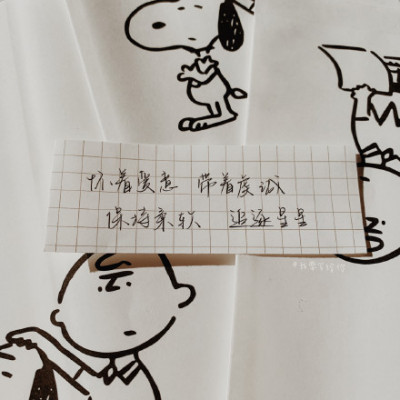 怀着爱意 带着虔诚
保持柔软 追逐星星